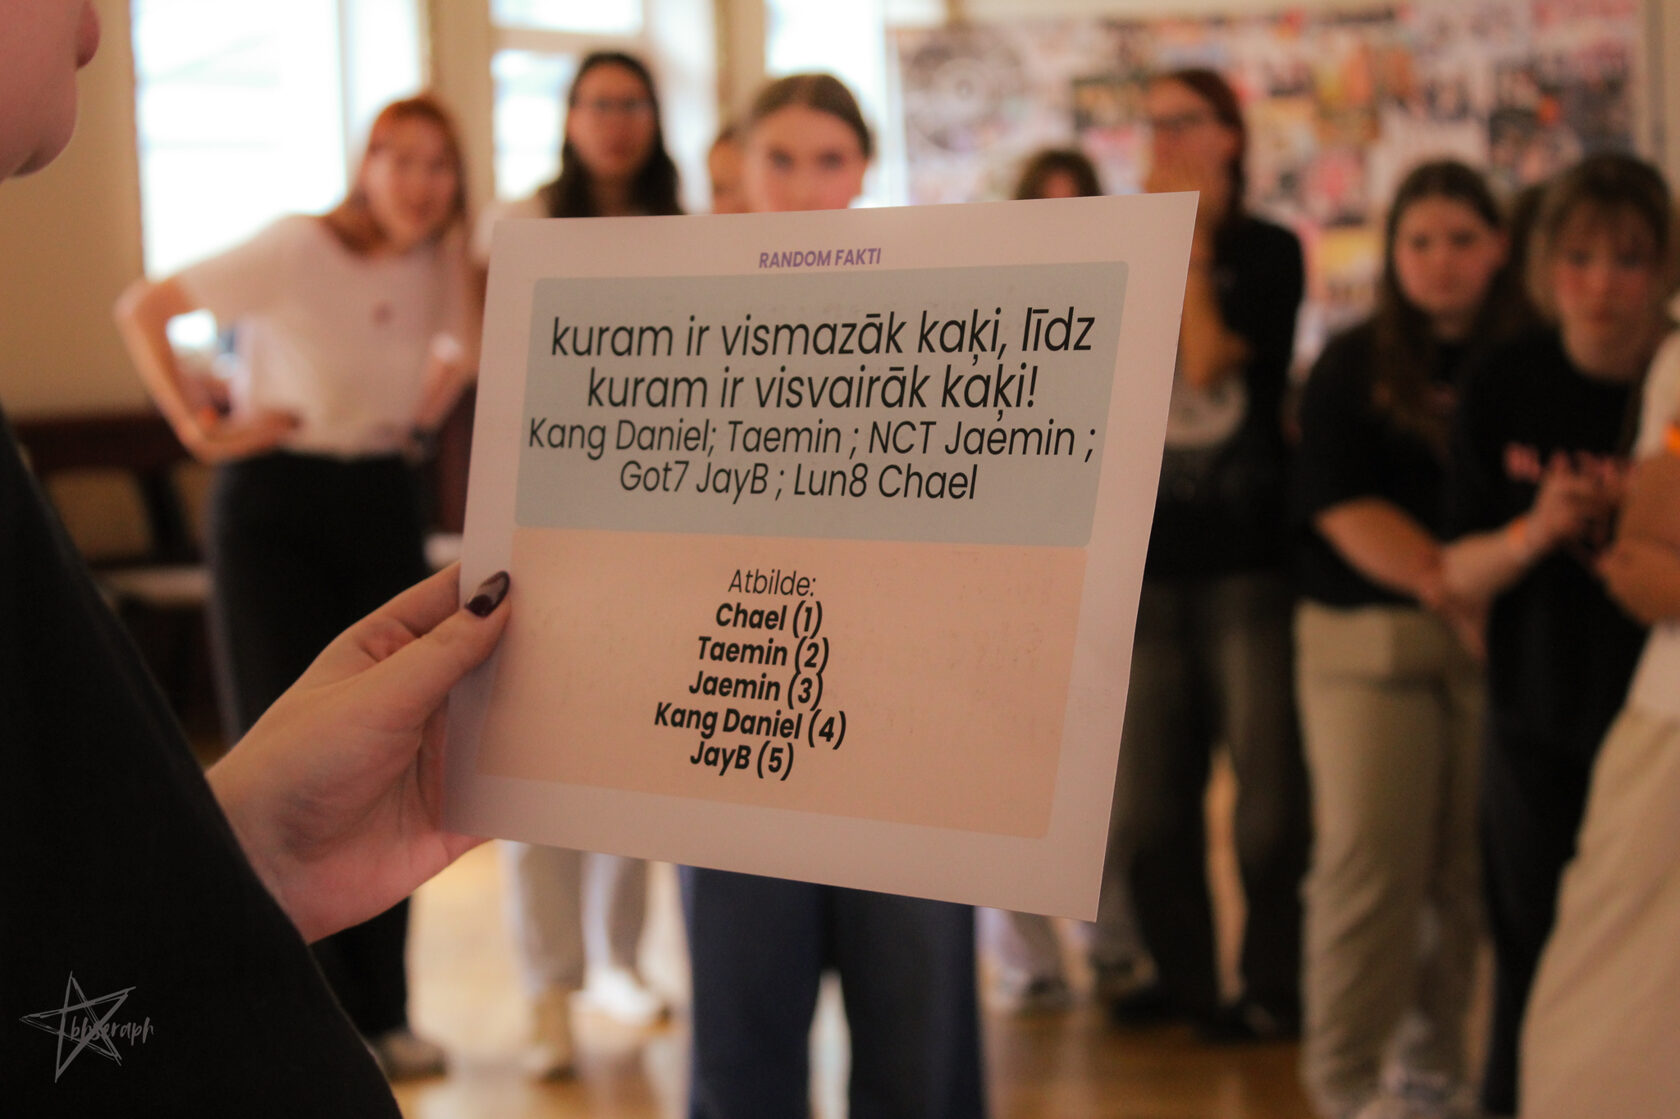 RANDOM FAKTI
kuram ir vismazāk kaķi, līdz
kuram ir visvairāk kaķi!
Kang Daniel; Taemin ; NCT Jaemin ;
Got7 JayB ; Lun8 Chael
Atbilde:
Chael (1)
Taemin (2)
Jaemin (3)
Kang Daniel (4)
JayB (5)
bbseraph